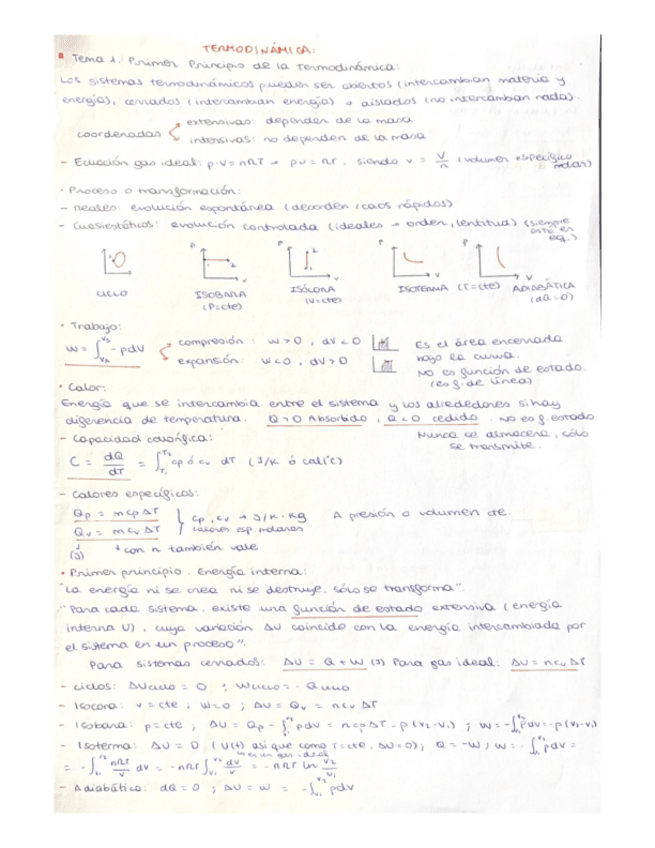 TERMODINÁMICA:
Tema 1: Primer Principio de la Termodinámica:
Los sistemas termodinámicos pueden ser abiertos (intercambian materia y
energía), cerrados (intercambian energía) o aislados (no intercambian nada).
coordenadas
extensivas: dependen de la masa
intensivas: no dependen de la masa
- Ecuación gas ideal: p·V = nRT → pv = RT, siendo v = V/n (volumen específico molar)
· Proceso o transformación:
- Reales: evolución espontánea (desorden/caos rápidos)
- Cuasiestáticos: evolución controlada (ideales → orden, lentitud) (siempre está en eq.)
CICLO
P V 1 2 ISOBARA (P=cte)
P V 2 1 ISÓCORA (V=cte)
P V ISOTERMA (T=cte)
P V ADIABÁTICA (dQ=0)
· Trabajo:
W = ∫ᵥₐᵛᵇ -pdV
compresión: W>0, dV<0
expansión: W<0, dV>0
Es el área encerrada
bajo la curva.
No es función de estado.
(es f. de línea)
· Calor:
Energía que se intercambia entre el sistema y los alrededores si hay
diferencia de temperatura. Q>0 Absorbido, Q<0 cedido. No es f. estado
Nunca se almacena, sólo
se transmite.
- Capacidad calorífica:
C = dQ/dT = ∫T₁T₂ cp ó cv dT (J/K ó cal/°C)
- Calores específicos:
Qp = m cp ΔT
Qv = m cv ΔT
(J)
cp, cv → J/K·Kg
calores esp. molares
A presión o volumen cte.
con n también vale
· Primer principio. Energía interna:
"La energía ni se crea ni se destruye, sólo se transforma".
"Para cada sistema, existe una función de estado extensiva (energía
interna U), cuya variación ΔU coincide con la energía intercambiada por
el sistema en un proceso".
Para sistemas cerrados: ΔU = Q + W (J) Para gas ideal: ΔU = ncv ΔT
- Ciclos: ΔUciclo = 0; Wciclo = -Qciclo
- Isocora: V = cte; W=0; ΔU = Qv = ncv ΔT
- Isobara: p=cte; ΔU = Qp - ∫v₁v₂ pdV = ncpΔT - p(v₂-v₁); W = -∫v₁v₂ pdV = -p(v₂-v₁)
- Isoterma: ΔU = 0 (U(t) así que como T=cte, ΔU=0); Q = -W; W = -∫v₁v₂ pdV =
= -∫v₁v₂ nRT/V dV = -nRT ∫v₁v₂ dV/V = -nRT ln V₂/V₁
- Adiabático: dQ = 0; ΔU = W = -∫v₁v₂ pdV